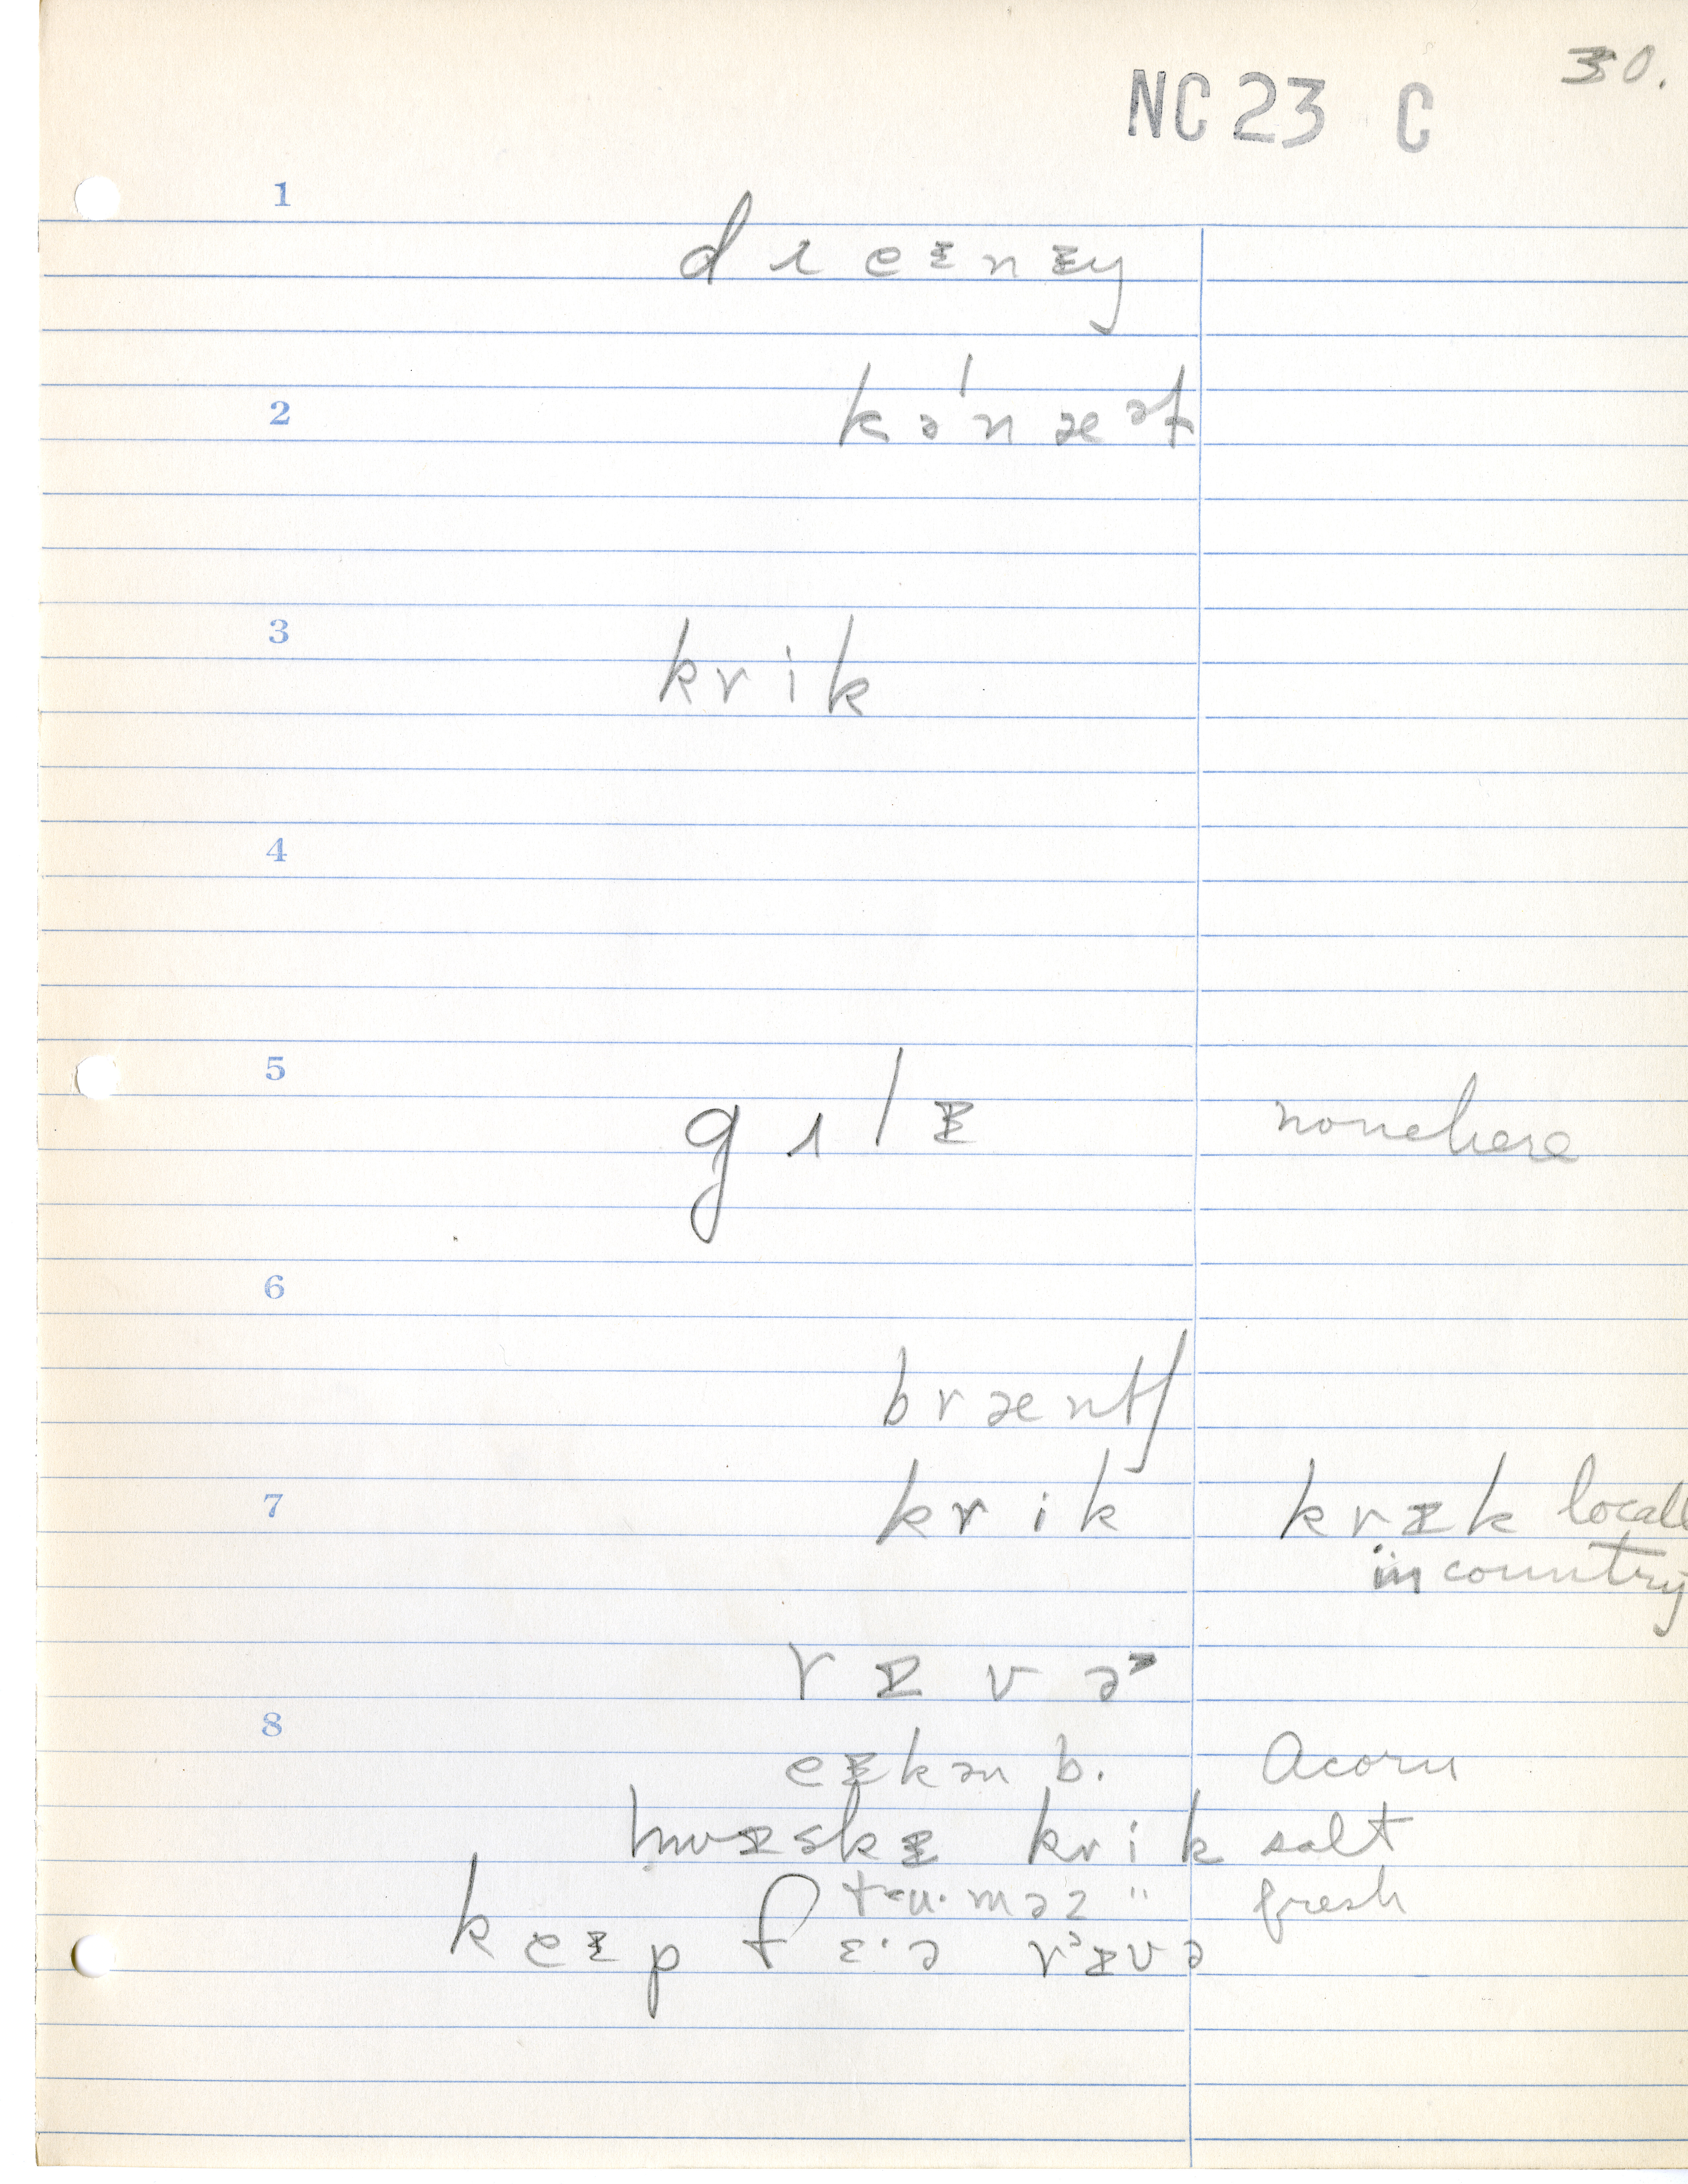 30.
NC 23 C
1
d ɹ e ɪ n ɪ ŋ
2
k ə ˈ n æ ə l
3
k r i k
4
5
g ʌ l ɪ none here
6
b r æ n tʃ
7
k r i k k r ɪ k locall
in country
r ɪ v ə
8
e ɪ k ə n b. Acorn
ʍ ɪ s k ɪ k r i k salt
" fresh
k e ɪ p f ɛ · ə r ɪ v ə